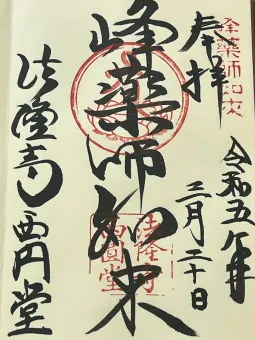 奉拝
金薬師如来
令和五年
三月二十日
峰薬師如来
法隆寺
西圓堂
法隆寺西円堂